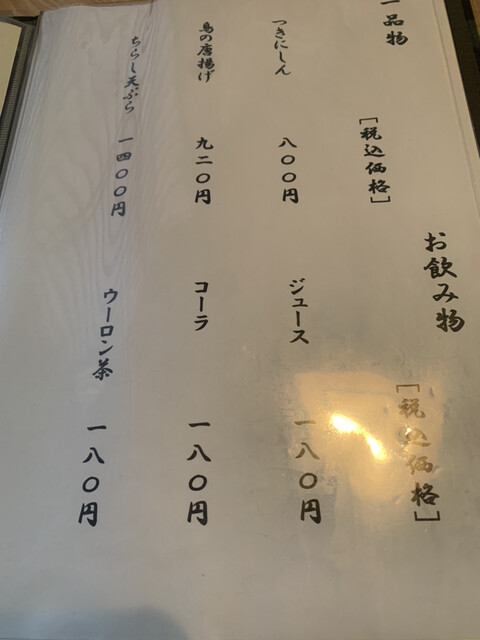 一品物
[税込価格]
つきにしん 八〇〇円
鳥の唐揚げ 九二〇円
ちらし天ぷら 一四〇〇円
お飲み物
[税込価格]
ジュース 一八〇円
コーラ 一八〇円
ウーロン茶 一八〇円